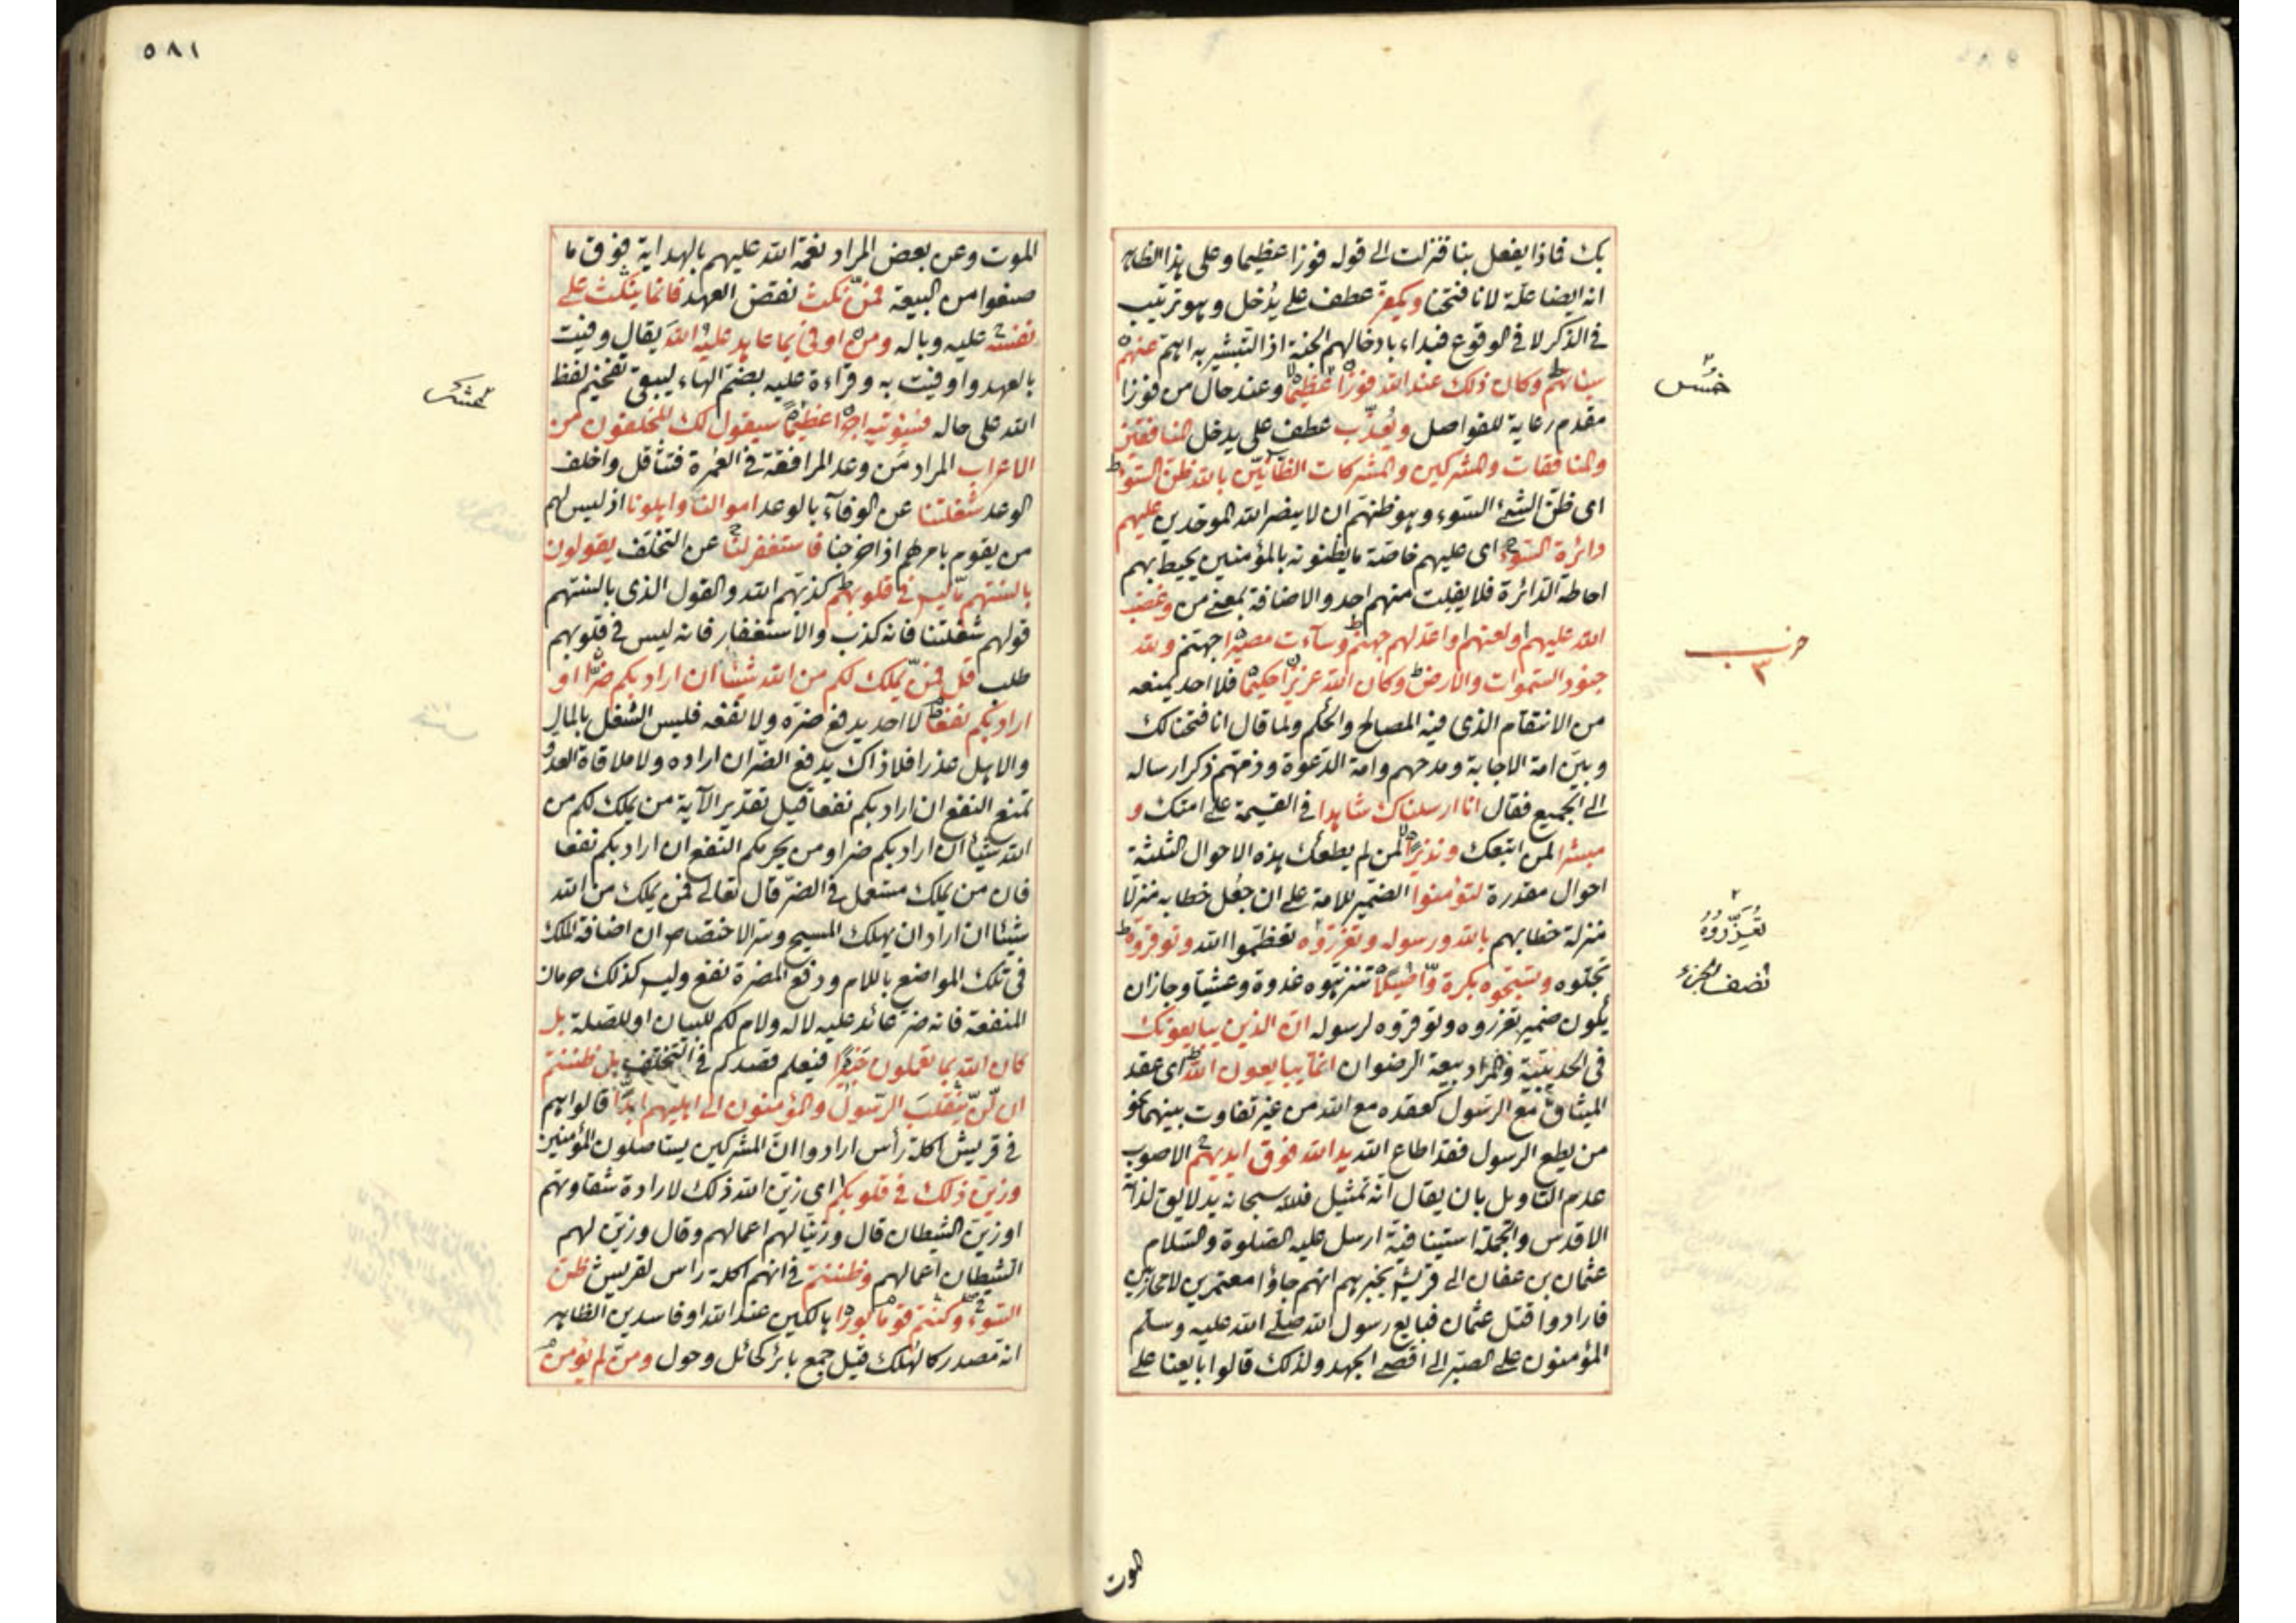 بك فماذا يفعل بنا فنزلت الى قوله فوزا عظيما وعلى هذا الظاهر
انه ايضا علة لانا فتحنا ويكفر عطف على يدخل وهو ترتيب
فى الذكر لا فى الوقوع فبداء بادخالهم الجنة اذ التبشير به اهم عنهم
سيئاتهم وكان ذلك عند الله فوزا عظيما وعند حال من فوزا
مقدم رعاية للفواصل ويعذب عطف على يدخل المنافقين
والمنافقات والمشركين والمشركات الظآنين بالله ظن السوء
اى ظن الشئ السوء وهو ظنهم ان لا ينصر الله الموحدين عليهم
دائرة السوء اى عليهم خاصة ما يظنونه بالمؤمنين يحيط بهم
احاطة الدائرة فلا يفلت منهم احد والاضافة بمعنى من وغضب
الله عليهم ولعنهم واعد لهم جهنم وسآءت مصيرا جهنم ولله
جنود السموات والارض وكان الله عزيزا حكيما فلا احد يمنعه
من الانتقام الذى فيه المصالح والحكم ولما قال انا فتحنا لك
وبين امة الاجابة ومدحهم وامة الدعوة وذمهم ذكر ارساله
الى الجميع فقال انا ارسلناك شاهدا فى القيمة على امتك و
مبشرا لمن اتبعك ونذيرا لمن لم يطعك هذه الاحوال الثلثة
احوال مقدرة لتؤمنوا الضمير للامة على ان جعل خطابه منزلا
منزلة خطابهم بالله ورسوله وتعزروه تعظموا الله وتوقروه
تجلوه وتسبحوه بكرة واصيلا تنزهوه غدوة وعشيا وجاز ان
يكون ضمير تعزروه وتوقروه لرسوله ان الذين يبايعونك
فى الحديبية والمراد بيعة الرضوان انما يبايعون الله اى عقد
الميثاق مع الرسول كعقده مع الله من غير تفاوت بينهما نحو
من يطع الرسول فقد اطاع الله يد الله فوق ايديهم الاصوب
عدم التاويل بان يقال انه تمثيل فلله سبحانه يد لايق لذاته
الاقدس والجملة استينافية ارسل عليه الصلوة والسلام
عثمان بن عفان الى قريش يخبرهم انهم جاؤا معتمرين لا محاربين
فارادوا قتل عثمان فبايع رسول الله صلى الله عليه وسلم
المؤمنون على الصبر الى اقصى الجهد ولذلك قالوا بايعنا على
الموت
خمس
حزب
٣
تعزروه
نصف الجزء
٥٨١
الموت وعن بعض المراد نعمة الله عليهم بالهداية فوق ما
صنعوا من البيعة فمن نكث نقض العهد فانما ينكث على
نفسه عليه وباله ومن اوفى بما عاهد عليه الله يقال وفيت
بالعهد واوفيت به وقراءة عليه بضم الهاء ليبقى تفخيم لفظ
الله على حاله فسنؤتيه اجرا عظيما سيقول لك المخلفون من
الاعراب المراد من وعد المرافقة فى العمرة فتثاقل واخلف
الوعد شغلتنا عن الوفآء بالوعد اموالنا واهلونا اذ ليس لهم
من يقوم بامرهم اذا خرجنا فاستغفر لنا عن التخلف يقولون
بالسنتهم ما ليس فى قلوبهم كذبهم الله والقول الذى بالسنتهم
قولهم شغلتنا فانه كذب والاستغفار فانه ليس فى قلوبهم
طلب قل فمن يملك لكم من الله شيئا ان اراد بكم ضرا او
اراد بكم نفعا لا احد يدفع ضره ولا نفعه فليس الشغل بالمال
والاهل عذرا فلا ذاك يدفع الضر ان اراده ولا ملاقاة العدو
تمنع النفع ان اراد بكم نفعا قيل تقدير الآية من يملك لكم من
الله شيئا ان اراد بكم ضرا ومن يحرمكم النفع ان اراد بكم نفعا
فان من يملك مستعمل فى الضر قال تعالى فمن يملك من الله
شيئا ان اراد ان يهلك المسيح وسر الاختصاص ان اضافة الملك
فى تلك المواضع باللام ودفع المضرة نفع وليس كذلك حرمان
المنفعة فانه ضر عائد عليه لا له ولام لكم للبيان او للصلة بل
كان الله بما تعملون خبيرا فيعلم قصدكم فى التخلف بل ظننتم
ان لن ينقلب الرسول والمؤمنون الى اهليهم ابدا قالوا هم
فى قريش اكلة رأس ارادوا ان المشركين يستاصلون المؤمنين
وزين ذلك فى قلوبكم اى زين الله ذلك لارادة شقاوتهم
او زين الشيطان قال وزينا لهم اعمالهم وقال وزين لهم
الشيطان اعمالهم وظننتم فى انهم اكلة راس لقريش ظن
السوء وكنتم قوما بورا هالكين عند الله او فاسدين الظاهر
انه مصدر كالهلك قيل جمع بائر كحائل وحول ومن لم يؤمن